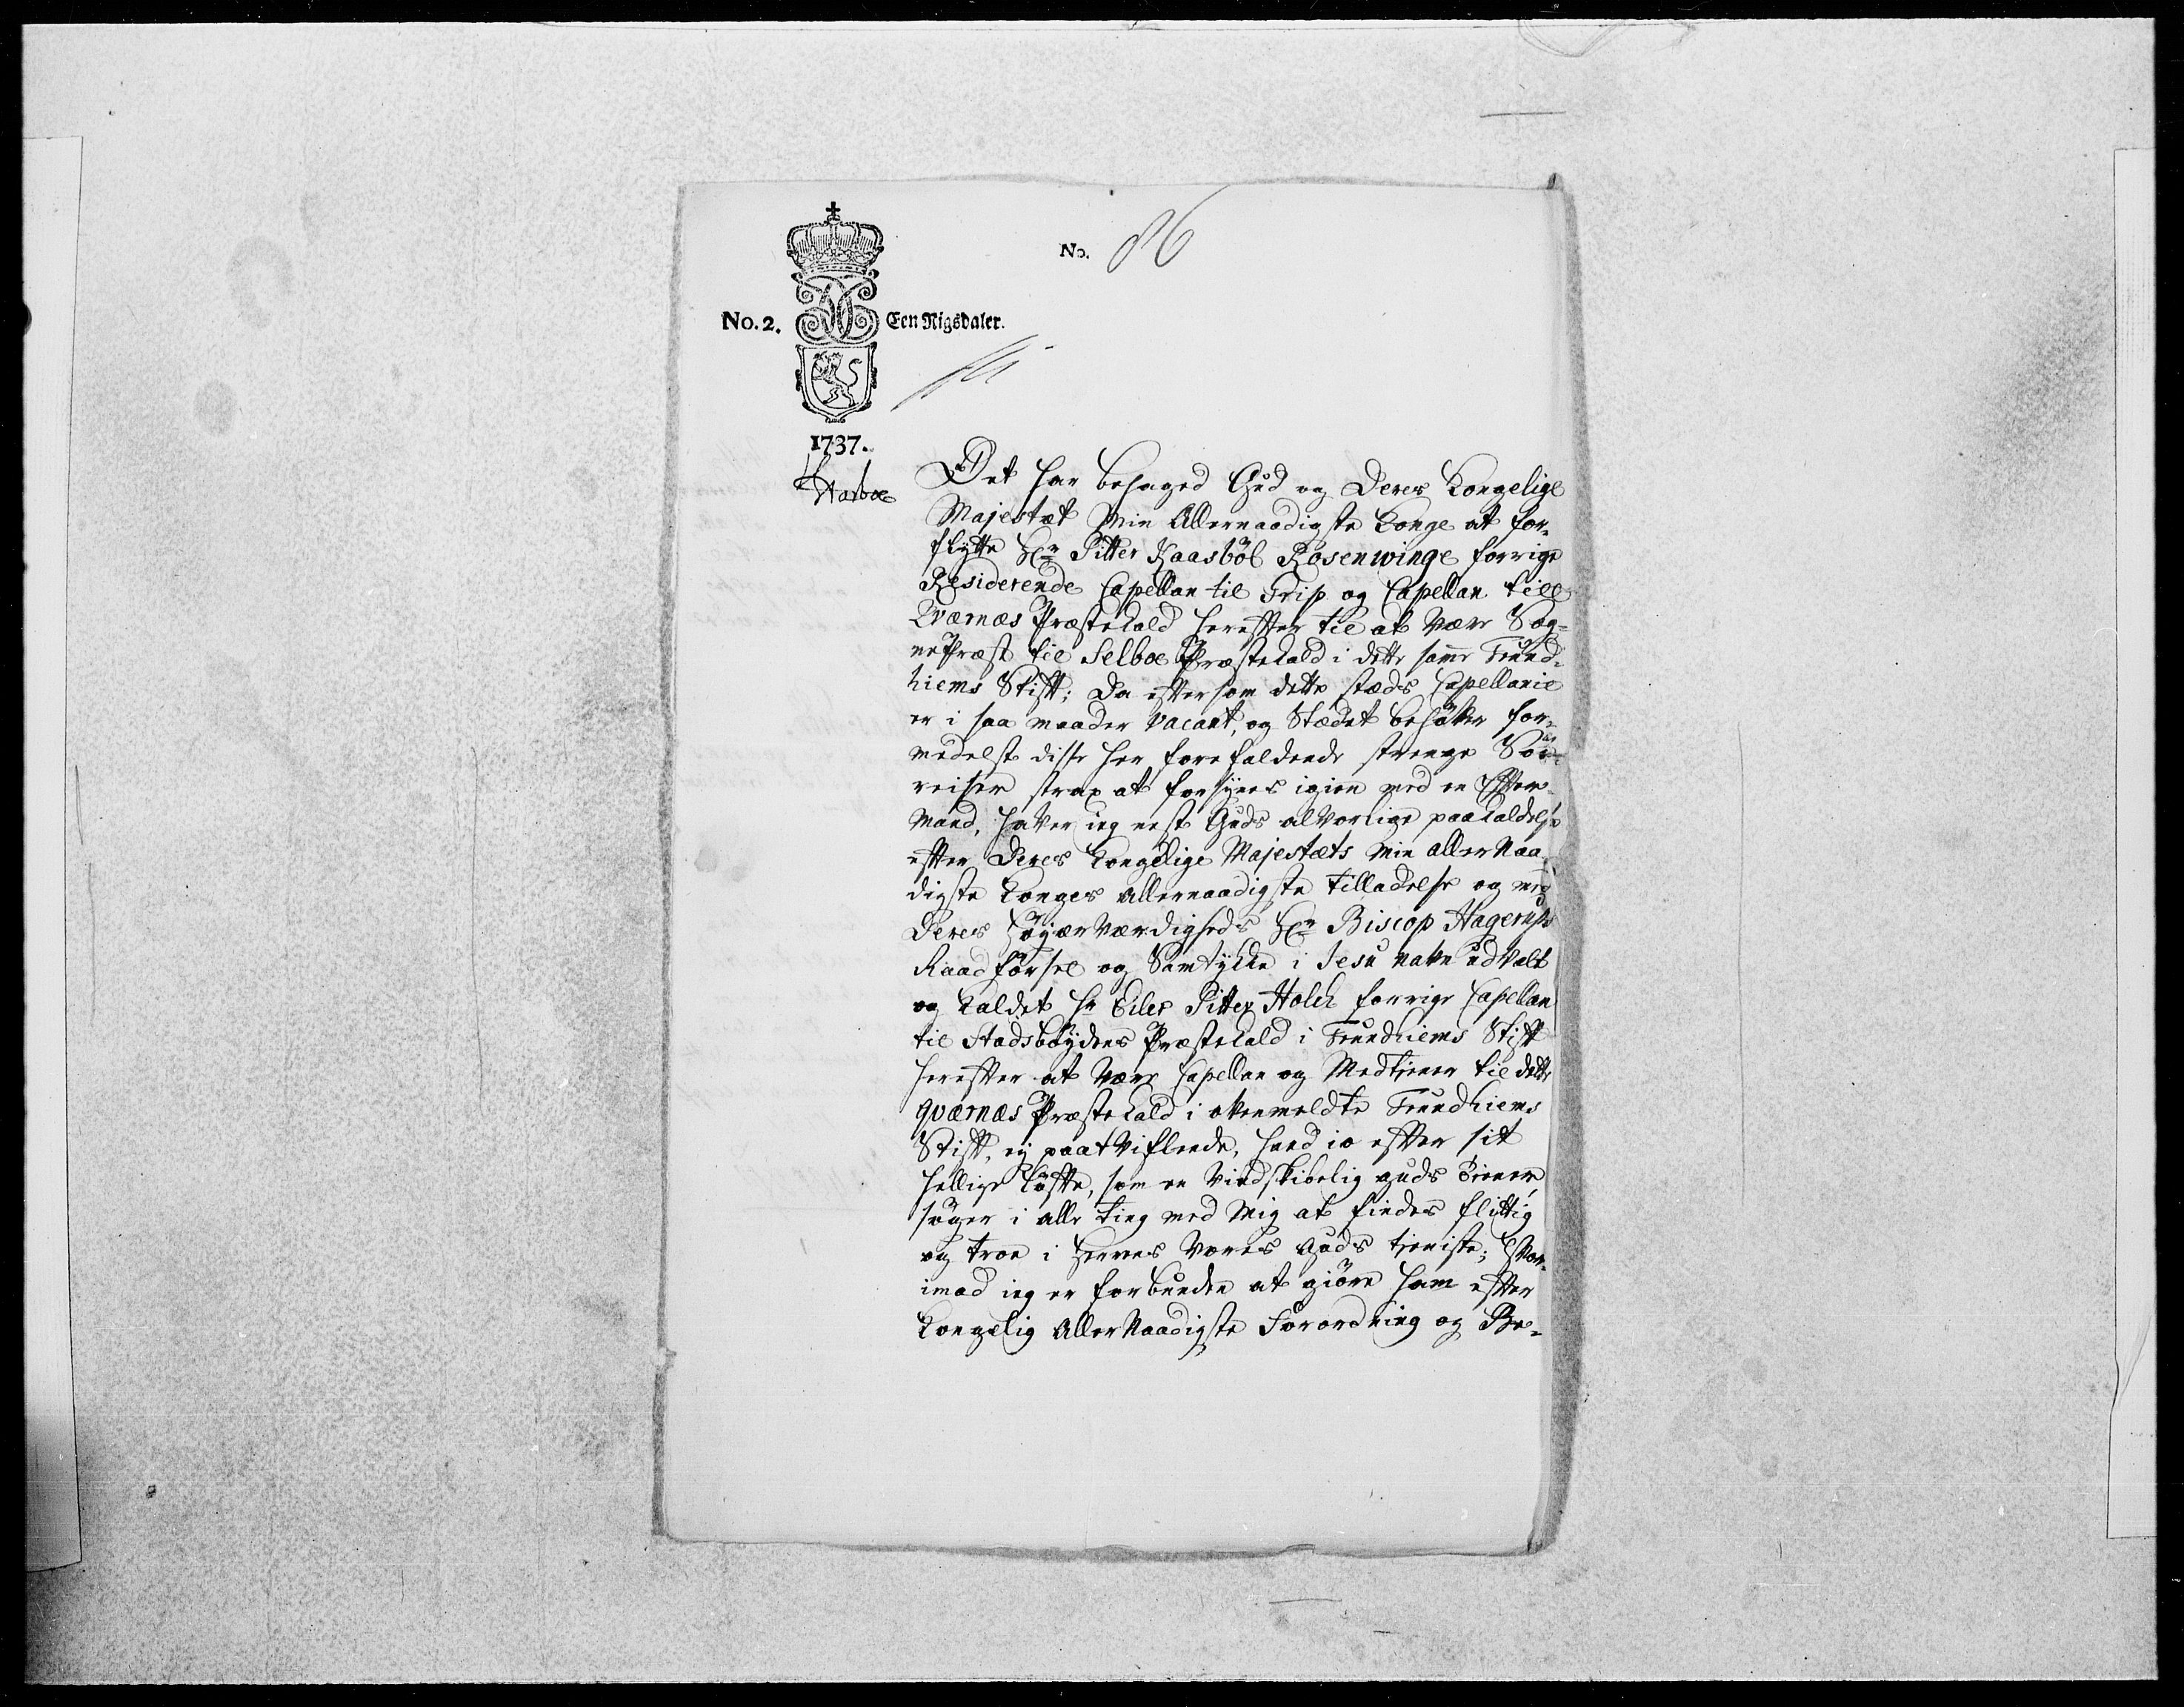 No. 86
No. 2. Een Rigsdaler.
1737.
Harboe
Det har behaged Gud og Deres Kongelige
Majestæt Min Allernaadigste Konge at for-
flytte Hr Pitter Kaasböl Rosenwinge forrige
Residerende Capellan til Grip og Capellan till
Qværnæs Præstekald herefter til at være Sog-
nePræst til Selboe Præstekald i dette samme Trund-
hiems Stift; Da eftersom dette stæds Capellanie
er i saa maader vacant, og Stædet behöver for-
medelst disse her forefaldende strenge Söe-
reiser strax at forsÿnes igien med en Efter-
mand, haver ieg nest Guds alvorlige paakaldelse
efter Deres Kongelige Majestæts Min allerNaa-
digste Konges allernaadigste tilladelse og med
Deres Höyærværdigheds Hr Biscop Hagerups
Raadförsel og Samtÿkke i Jesu navn udvalt
og kaldet Hr Eiler Pitter Holck forrige Capellan
til Stadsböydens Præstekald i Trundhiems Stift
herefter at være Capellan og Medtjener til dette
qværnæs Præstekald i ovenmeldte Trundhiems
Stift, ej paatviflende, hand jo efter sit
hellige Löfte, som en Vindskibelig Guds Tiener
söger i alle ting med Mig at findes flittig
og troe i Herrens Vores Guds tjeniste; Hvor-
imod ieg er forbunden at giöre ham efter
Kongelig AllerNaadigste Forordning og Be-